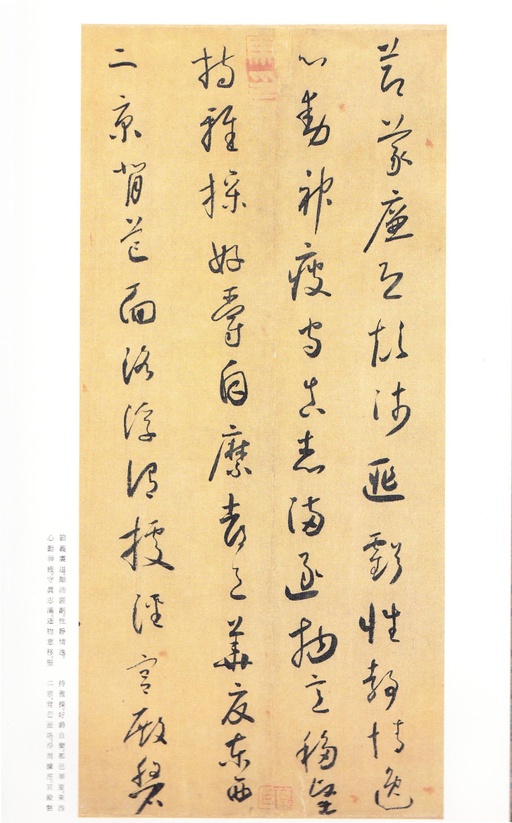 節義廉退顛沛匪虧性靜情逸
心動神疲守真志滿逐物意移堅
持雅操好爵自縻都邑華夏東西
二京背芒面洛浮渭據涇宮殿磐
節義廉退顛沛匪虧性靜情逸
心動神疲守真志滿逐物意移堅
持雅操好爵自縻都邑華夏東西
二京背芒面洛浮渭據涇宮殿盤